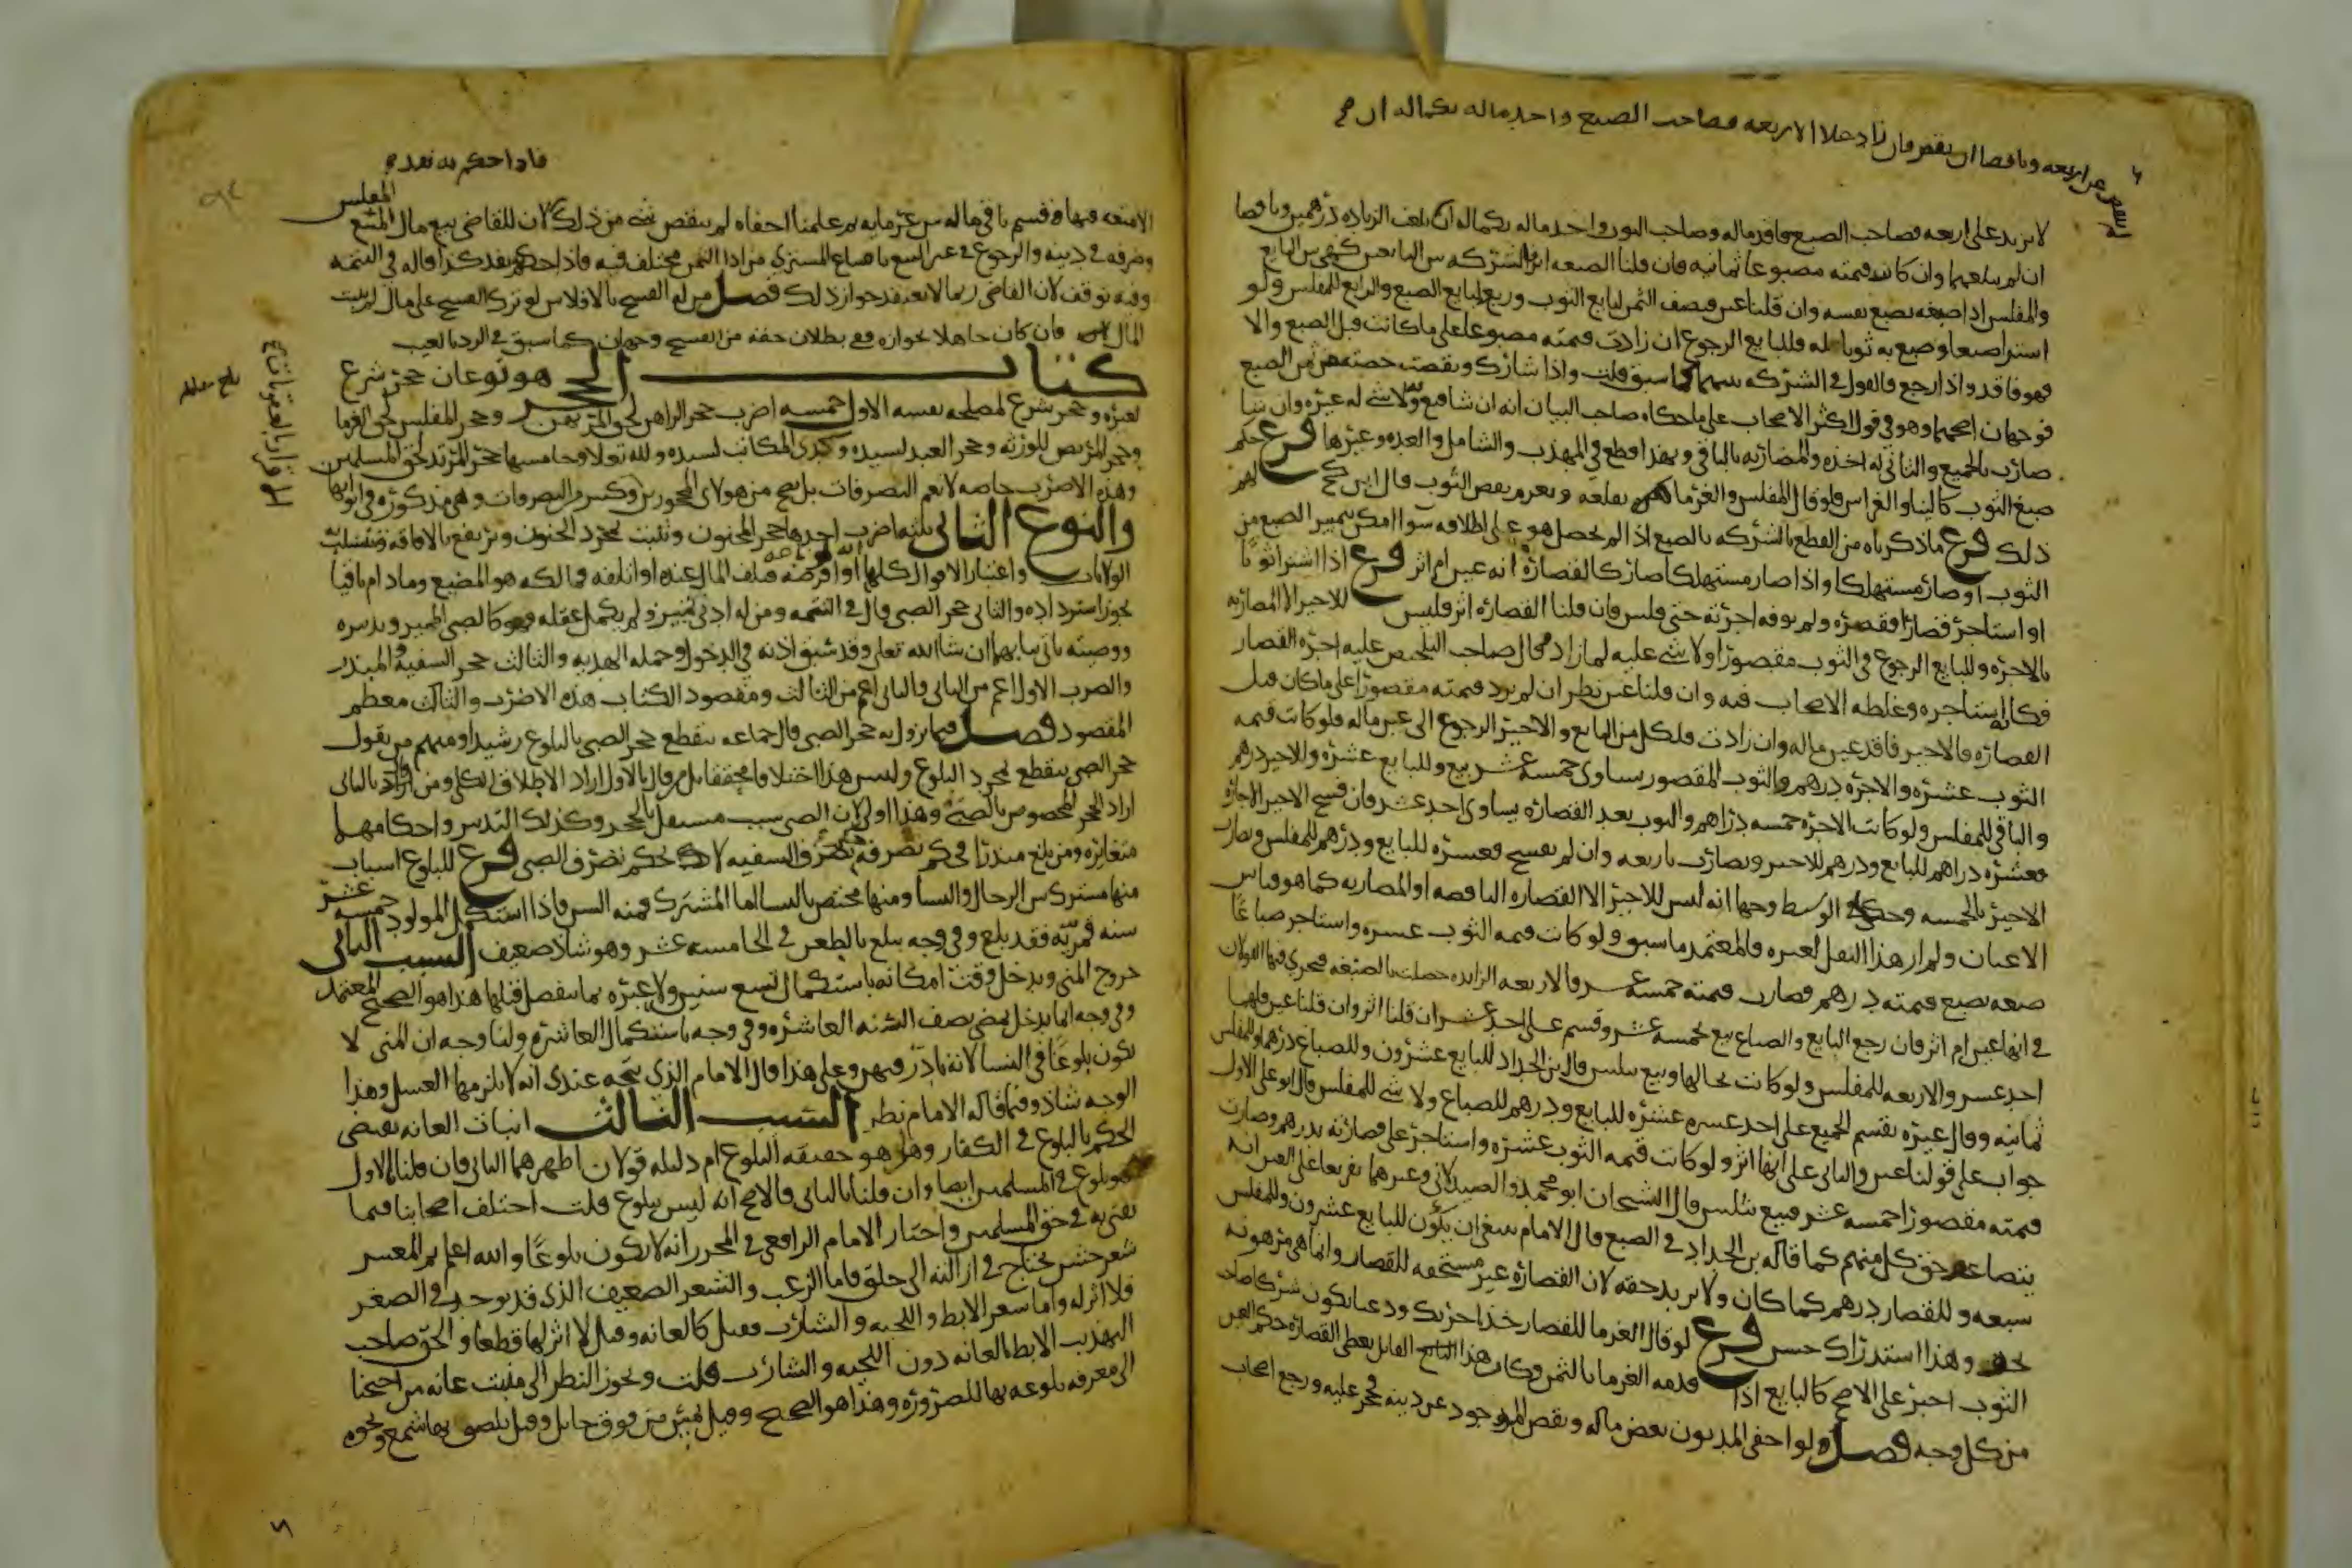 لا يزيد على اربعه فصاحب الصبغ فاقد ماله وصاحب الثوب واجد ماله بكماله ان بلغت الزياده درهمين وناقصا
ان لم يبلغهما وان كانت قيمته مصبوغا ثمانيه فان قلنا الصبغه اثر فالشركه بين البايعين كهي بين البايع
والمفلس اذا صبغه بصبغ نفسه وان قلنا عين فنصف الثمن لبايع الثوب وربعه لبايع الصبغ والربع للمفلس ولو
استرا صبغا وصبغ به ثوبا له فللبايع الرجوع ان زادت قيمته مصبوغا على ما كانت قبل الصبغ والا
فهو فاقد واذا رجع فالقول في الشركه بينهما كما سبق قلت واذا شارك ونقصت حصته عن ثمن الصبغ
فوجهان اصحهما وهو قول اكثر الاصحاب على ما حكاه صاحب البيان انه ان شا قنع به ولا شي له غيره وان شا
ضارب بالجميع والثاني له اخذه والمضاربه بالباقي وبهذا قطع في المهذب والشامل والعده وغيرها فرع حكم
صبغ الثوب كالبنا والغراس فلو قال المفلس والغرما نقلعه ونغرم نقص الثوب قال ابن كج لهم
ذلك فرع ما ذكرناه من القطع بالشركه بالصبغ اذا لم يحصل هو على اطلاقه سوا امكن تمييز الصبغ من
الثوب او صار مستهلكا واذا صار مستهلكا صار كالقصاره انه عين ام اثر فرع اذا اشترا ثوبا
او استاجر قصارا فقصره ولم يوفه اجرته حتى فلس فان قلنا القصاره اثر فليس للاجير الا المضاربه
بالاجره وللبايع الرجوع في الثوب مقصورا ولا شي عليه لما زاد وقال صاحب التلخيص عليه اجره القصار
فكانه استاجره وغلطه الاصحاب فيه وان قلنا عين نظر ان لم يزد قيمته مقصورا على ما كان قبل
القصاره فالاجير فاقد عين ماله وان زادت فلكل من البايع والاجير الرجوع الى عين ماله فلو كانت قيمه
الثوب عشره والاجره درهم والثوب المقصور يساوي خمسه عشر بيع وللبايع عشره وللاجير درهم
والباقي للمفلس ولو كانت الاجره خمسه دراهم والثوب بعد القصاره يساوي احد عشر فان فسخ الاجير الاجاره
فعشره دراهم للبايع ودرهم للاجير ويضارب باربعه وان لم يفسخ فعشره للبايع ودرهم للمفلس ويضارب
الاجير بالخمسه وحكى في الوسيط وجها انه ليس للاجير الا القصاره الناقصه او المضاربه كما هو قياس
الاعيان ولم ار هذا النقل لغيره والمعتمد ما سبق ولو كانت قيمه الثوب عشره واستاجر صباغا
صبغه بصبغ قيمته درهم فصارت قيمته خمسه عشر فالاربعه الزايده حصلت بالصبغه فيجري فيها القولان
في انها عين ام اثر فان رجع البايع والصباغ بيع بخمسه عشر وقسم على احد عشر ان قلنا اثر وان قلنا عين فلهما
احد عشر والاربعه للمفلس ولو كانت بحالها وبيع بثلثين قال بن الحداد للبايع عشرون وللصباغ درهم وللمفلس
ثمانيه وقال غيره يقسم الجميع على احد عشر عشره للبايع ودرهم للصباغ ولا شي للمفلس قال ابو علي الاول
جواب على قولنا عين والثاني على انها اثر ولو كانت قيمه الثوب عشره واستاجر على قصارته بدرهم وصارت
قيمته مقصورا خمسه عشر فبيع بثلثين قال الشيخان ابو محمد والصيدلاني وغيرهما تفريعا على العين انه
يتضاعف حق كل منهم كما قاله بن الحداد في الصبغ قال الامام ينبغي ان يكون للبايع عشرون وللمفلس
سبعه وللقصار درهم كما كان ولا يزيد حقه لان القصاره غير مستحقه للقصار وانما هي مرهونه
بحقه وهذا استدراك حسن فرع لو قال الغرما للقصار خذ اجرتك ودعنا نكون شركا صاحب
الثوب اجبر على الاصح كالبايع اذا قدمه الغرما بالثمن وكان هذا القايل يعطي القصاره حكم العين
من كل وجه فصل ولو اخفى المديون بعض ماله ونقص الموجود عن دينه فحجر عليه ورجع اصحاب
فاذا حكم به نفذ
الامتعه فيها وقسم باقي ماله بين غرمايه ثم علمنا اخفاه لم ينقض شي من ذلك لان للقاضي بيع مال الممتنع
وصرفه في دينه والرجوع في عين المبيع بامتناع المشتري من ادا الثمن مختلف فيه فاذا حكم نفذ كذا قاله في التتمه
وفيه توقف لان القاضي ربما لا يعتقد جواز ذلك فصل من له الفسخ بالافلاس لو ترك الفسخ على مال لم يثبت
المال فان كان جاهلا بجوازه ففي بطلان حقه من الفسخ وجهان كما سبق في الرد بالعيب
كتاب الحجر هو نوعان حجر شرع
لغيره وحجر شرع لمصلحه نفسه الاول خمسه اضرب حجر الراهن لحق المرتهن وحجر المفلس لحق الغرما
وحجر المريض للورثه وحجر العبد لسيده وكذى المكاتب لسيده ولله تعالى وخامسها حجر المرتد لحق المسلمين
وهذه الاضرب خاصه لا تعم التصرفات بل يصح من هولاي المحجورين كثير من التصرفات وهي مذكوره في ابوابها
والنوع الثاني ثلثه اضرب احدها حجر المجنون ويثبت بمجرد الجنون ويرتفع بالافاقه وتنسلب به
الولايات واعتبار الاقوال كلها او اقرضه فتلف المال عنده او اتلفه فمالكه هو المضيع وما دام باقيا
يجوز استرداده والثاني حجر الصبي قال في التتمه ومن له ادنى تمييز ولم يكمل عقله فهو كالصبي المميز وتدبيره
ووصيته ياتي بيانهما ان شا الله تعلى وقد سبق اذنه في الدخول وحمله الهديه والثالث حجر السفيه المبذر
والضرب الاول اعم من الثاني والثاني اعم من الثالث ومقصود الكتاب هذه الاضرب والثالث معظم
المقصود فصل فيما يزول به حجر الصبي قال جماعه ينقطع حجر الصبي بالبلوغ رشيدا ومنهم من يقول
حجر الصبي ينقطع بمجرد البلوغ وليس هذا اختلافا محققا بل من قال بالاول اراد الاطلاق الكلي ومن قال بالثاني
اراد الحجر المخصوص بالصبي وهذا اولى لان الصبي سبب مستقل بالحجر وكذلك التبذير واحكامهما
متغايره ومن بلغ مبذرا فحكم تصرفه حكم تصرف السفيه لا حكم تصرف الصبي فرع للبلوغ اسباب
منها مشترك بين الرجال والنسا ومنها مختص بالنسا اما المشترك فمنه السن فاذا استكمل المولود خمسه عشر
سنه قمريه فقد بلغ وفي وجه يبلغ بالطعن في الخامسه عشر وهو شاذ ضعيف السبب الثاني
خروج المني ويدخل وقت امكانه باستكمال تسع سنين ولا عبره بما ينفصل قبلها هذا هو الصحيح المعتمد
وفي وجه انما يدخل بمضي نصف السنه العاشره وفي وجه باستكمال العاشره ولنا وجه ان المني لا
يكون بلوغا في النسا لانه نادر فيهن وعلى هذا قال الامام الذي يتجه عندي انه لا يلزمها الغسل وهذا
الوجه شاذ وفيما قاله الامام نظر السبب الثالث انبات العانه يقتضي
الحكم بالبلوغ في الكفار وهل هو حقيقه البلوغ ام دليله قولان اظهرهما الثاني فان قلنا بالاول
فهو بلوغ في المسلمين ايضا وان قلنا بالثاني فالاصح انه ليس ببلوغ قلت اختلف اصحابنا فيما
يفتى به في حق المسلمين واختار الامام الرافعي في المحرر انه لا يكون بلوغا والله اعلم ثم المعتبر
شعر خشن يحتاج في ازالته الى حلق فاما الزغب والشعر الضعيف الذي قد يوجد في الصغر
فلا اثر له واما شعر الابط واللحيه والشارب فقيل كالعانه وقيل لا اثر لها قطعا والحق صاحب
التهذيب الابط بالعانه دون اللحيه والشارب قلت ويجوز النظر الى منبت عانه من احتجنا
الى معرفه بلوغه بها للضروره وهذا هو الصحيح وقيل تمس من فوق حايل وقيل يلصق بها شمع ونحوه